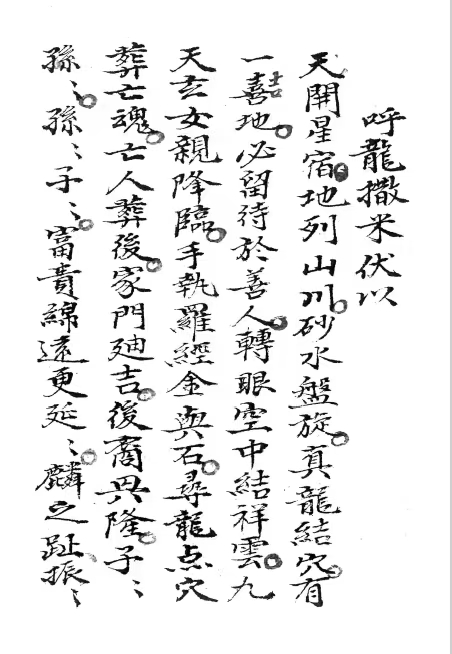 呼龍撒米伏以
天開星宿。地列山川。砂水盤旋。真龍結穴有
一喜吉地。必留待於善人。轉眼空中結祥雲。九
天玄女親降臨。手執羅經金與石。尋龍点穴
葬亡魂。亡人葬後。家門廸吉。後裔興隆。子〻
孫〻。孫〻子〻。富貴綿遠更延〻。麟之趾、振〻